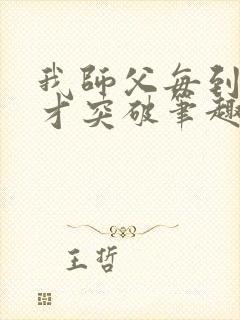 我师父每到
才突破笔趣
王哲